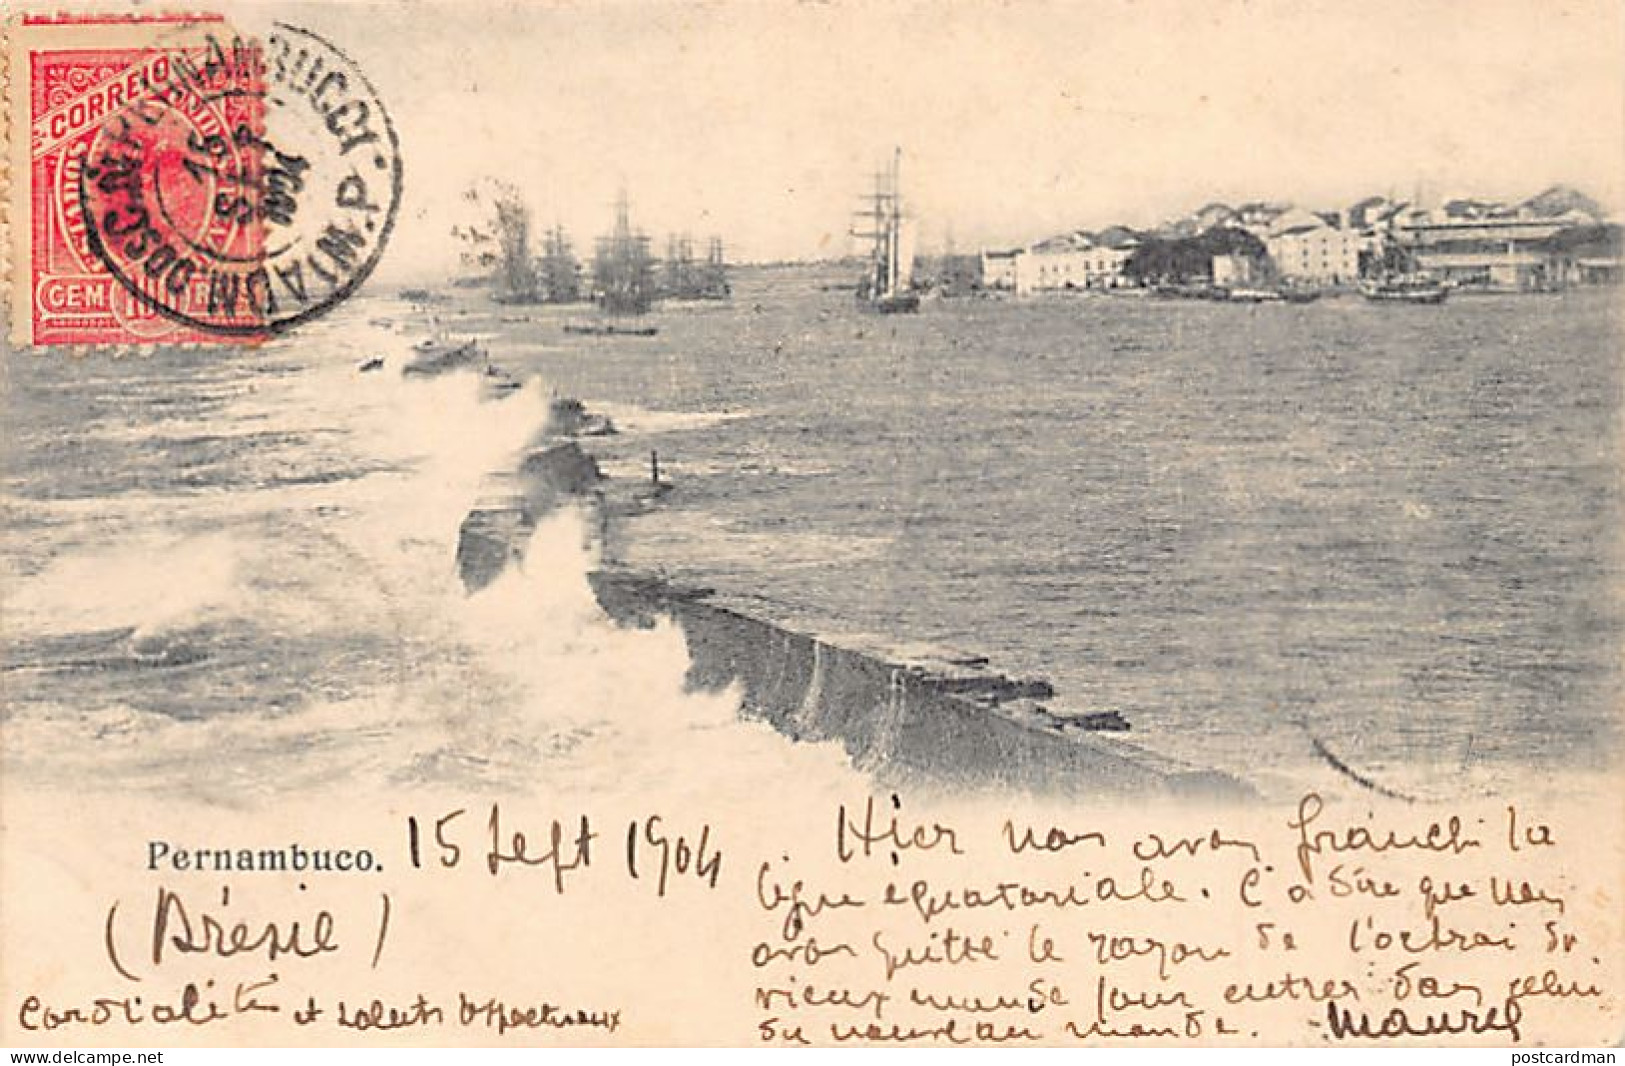 CORREIO
PERNAMBUCO
15
SET
CEM 100 R
Pernambuco. 15 Sept 1904
(Brésil)
Cordialité et saluts affectueux
Hier nous avons franchi la
ligne équatoriale. C'a dire que nous
avons quitté le rayon de l'octroi du
vieux monde pour entrer dans celui
du nouveau monde. Maurel
www.delcampe.net
postcardman